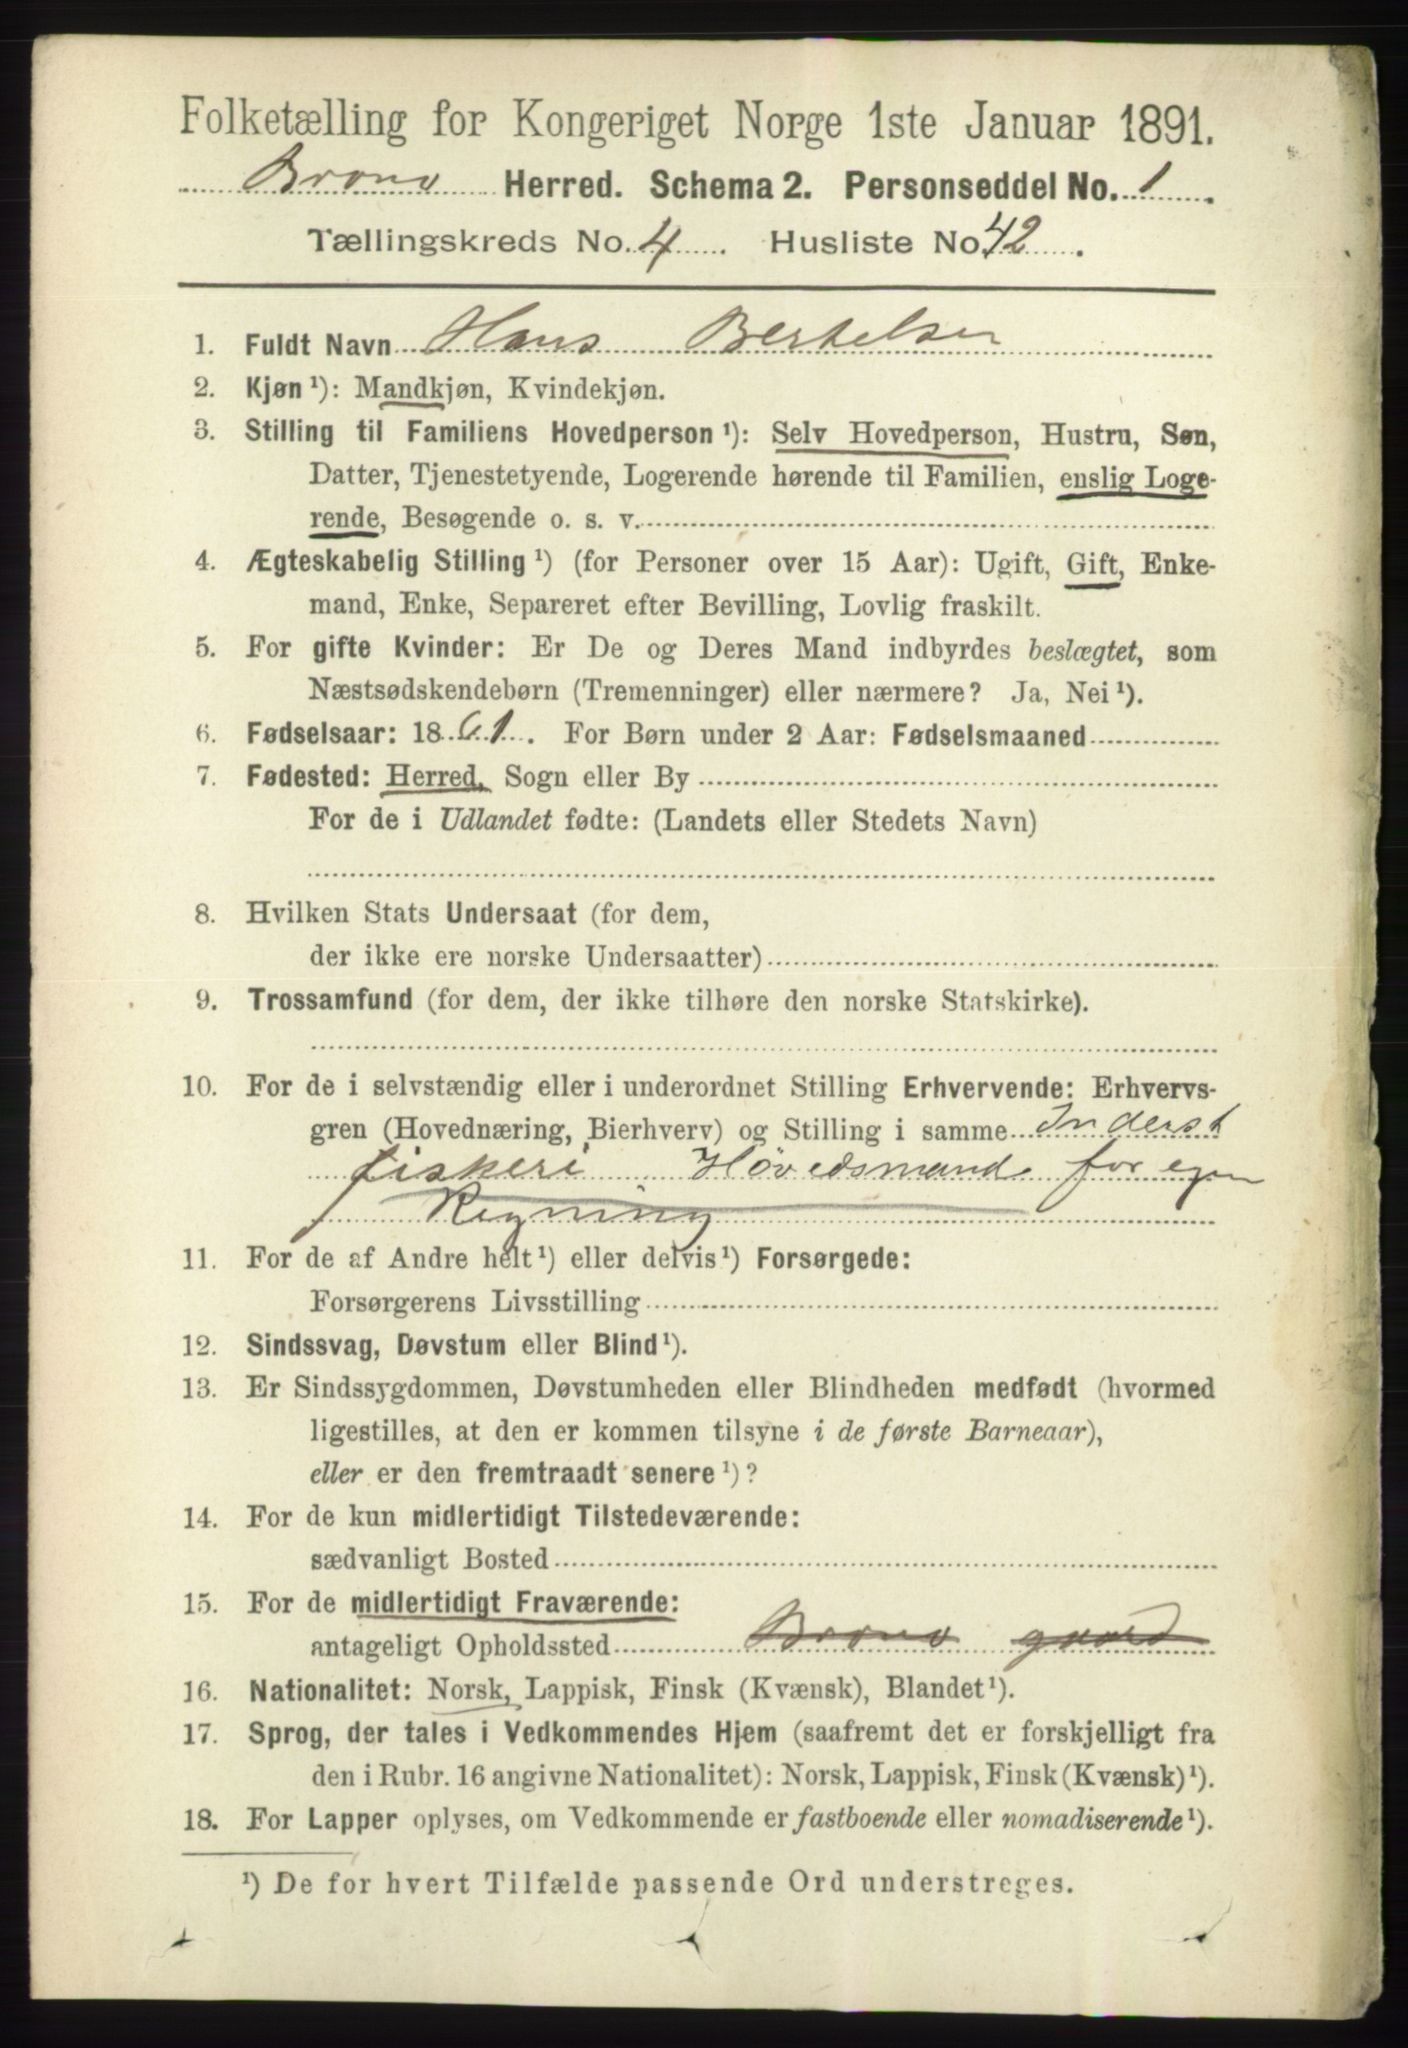 Folketælling for Kongeriget Norge 1ste Januar 1891.
Brønø Herred. Schema 2. Personseddel No. 1.
Tællingskreds No. 4. Husliste No. 42.
1. Fuldt Navn Hans Bertelsen
2. Kjøn ¹): Mandkjøn, Kvindekjøn.
3. Stilling til Familiens Hovedperson ¹): Selv Hovedperson, Hustru, Søn,
Datter, Tjenestetyende, Logerende hørende til Familien, enslig Loge-
rende, Besøgende o. s. v.
4. Ægteskabelig Stilling ¹) (for Personer over 15 Aar): Ugift, Gift, Enke-
mand, Enke, Separeret efter Bevilling, Lovlig fraskilt.
5. For gifte Kvinder: Er De og Deres Mand indbyrdes beslægtet, som
Næstsødskendebørn (Tremenninger) eller nærmere? Ja, Nei ¹).
6. Fødselsaar: 1861. For Børn under 2 Aar: Fødselsmaaned
7. Fødested: Herred, Sogn eller By
For de i Udlandet fødte: (Landets eller Stedets Navn)
8. Hvilken Stats Undersaat (for dem,
der ikke ere norske Undersaatter)
9. Trossamfund (for dem, der ikke tilhøre den norske Statskirke).
10. For de i selvstændig eller i underordnet Stilling Erhvervende: Erhvervs-
gren (Hovednæring, Bierhverv) og Stilling i samme Inderst
fiskeri Høvedsmand for egen
Regning
11. For de af Andre helt ¹) eller delvis ¹) Forsørgede:
Forsørgerens Livsstilling
12. Sindssvag, Døvstum eller Blind ¹).
13. Er Sindssygdommen, Døvstumheden eller Blindheden medfødt (hvormed
ligestilles, at den er kommen tilsyne i de første Barneaar),
eller er den fremtraadt senere ¹)?
14. For de kun midlertidigt Tilstedeværende:
sædvanligt Bosted
15. For de midlertidigt Fraværende:
antageligt Opholdssted Brønø gaard
16. Nationalitet: Norsk, Lappisk, Finsk (Kvænsk), Blandet ¹).
17. Sprog, der tales i Vedkommendes Hjem (saafremt det er forskjelligt fra
den i Rubr. 16 angivne Nationalitet): Norsk, Lappisk, Finsk (Kvænsk) ¹).
18. For Lapper oplyses, om Vedkommende er fastboende eller nomadiserende ¹).
¹) De for hvert Tilfælde passende Ord understreges.